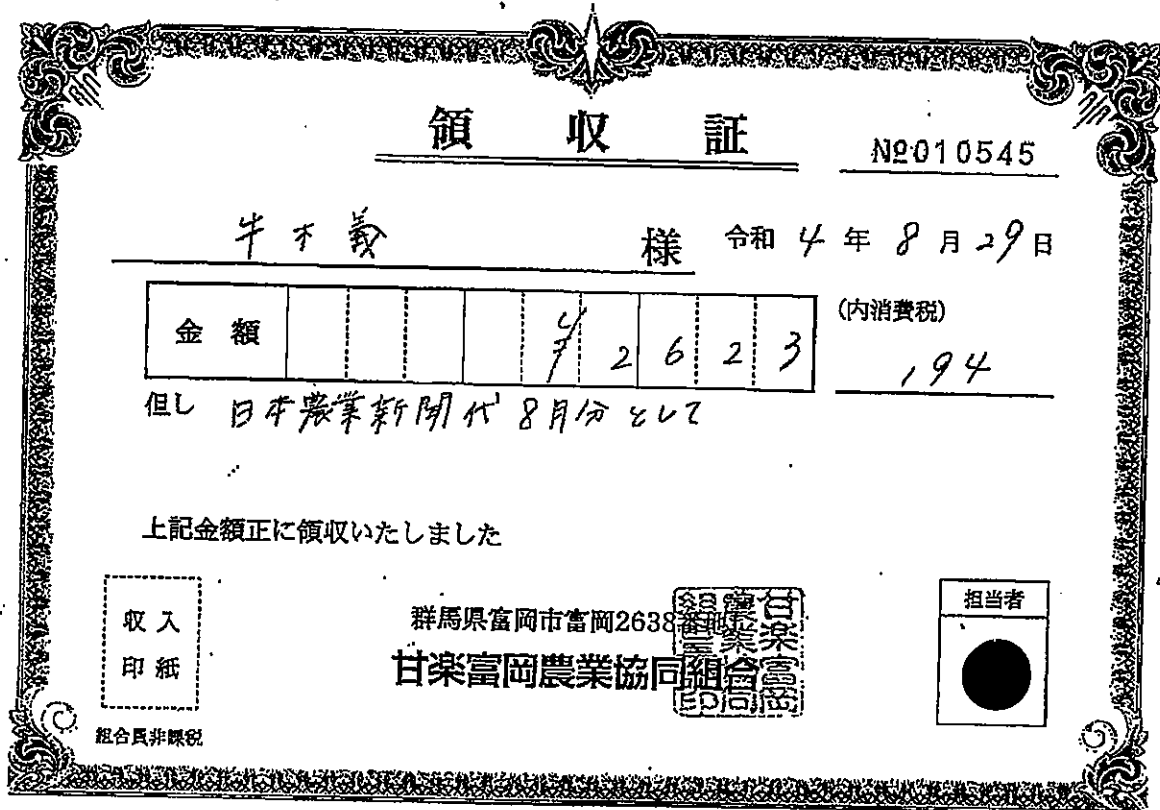 領収証
№010545
牛木義 様 令和4年8月29日
金額 ¥2623
(内消費税)
,194
但し 日本農業新聞代 8月分として
上記金額正に領収いたしました
収入
印紙
組合員非課税
群馬県富岡市富岡2638番地
甘楽富岡農業協同組合
甘楽富岡
農業協同
組合之印
担当者